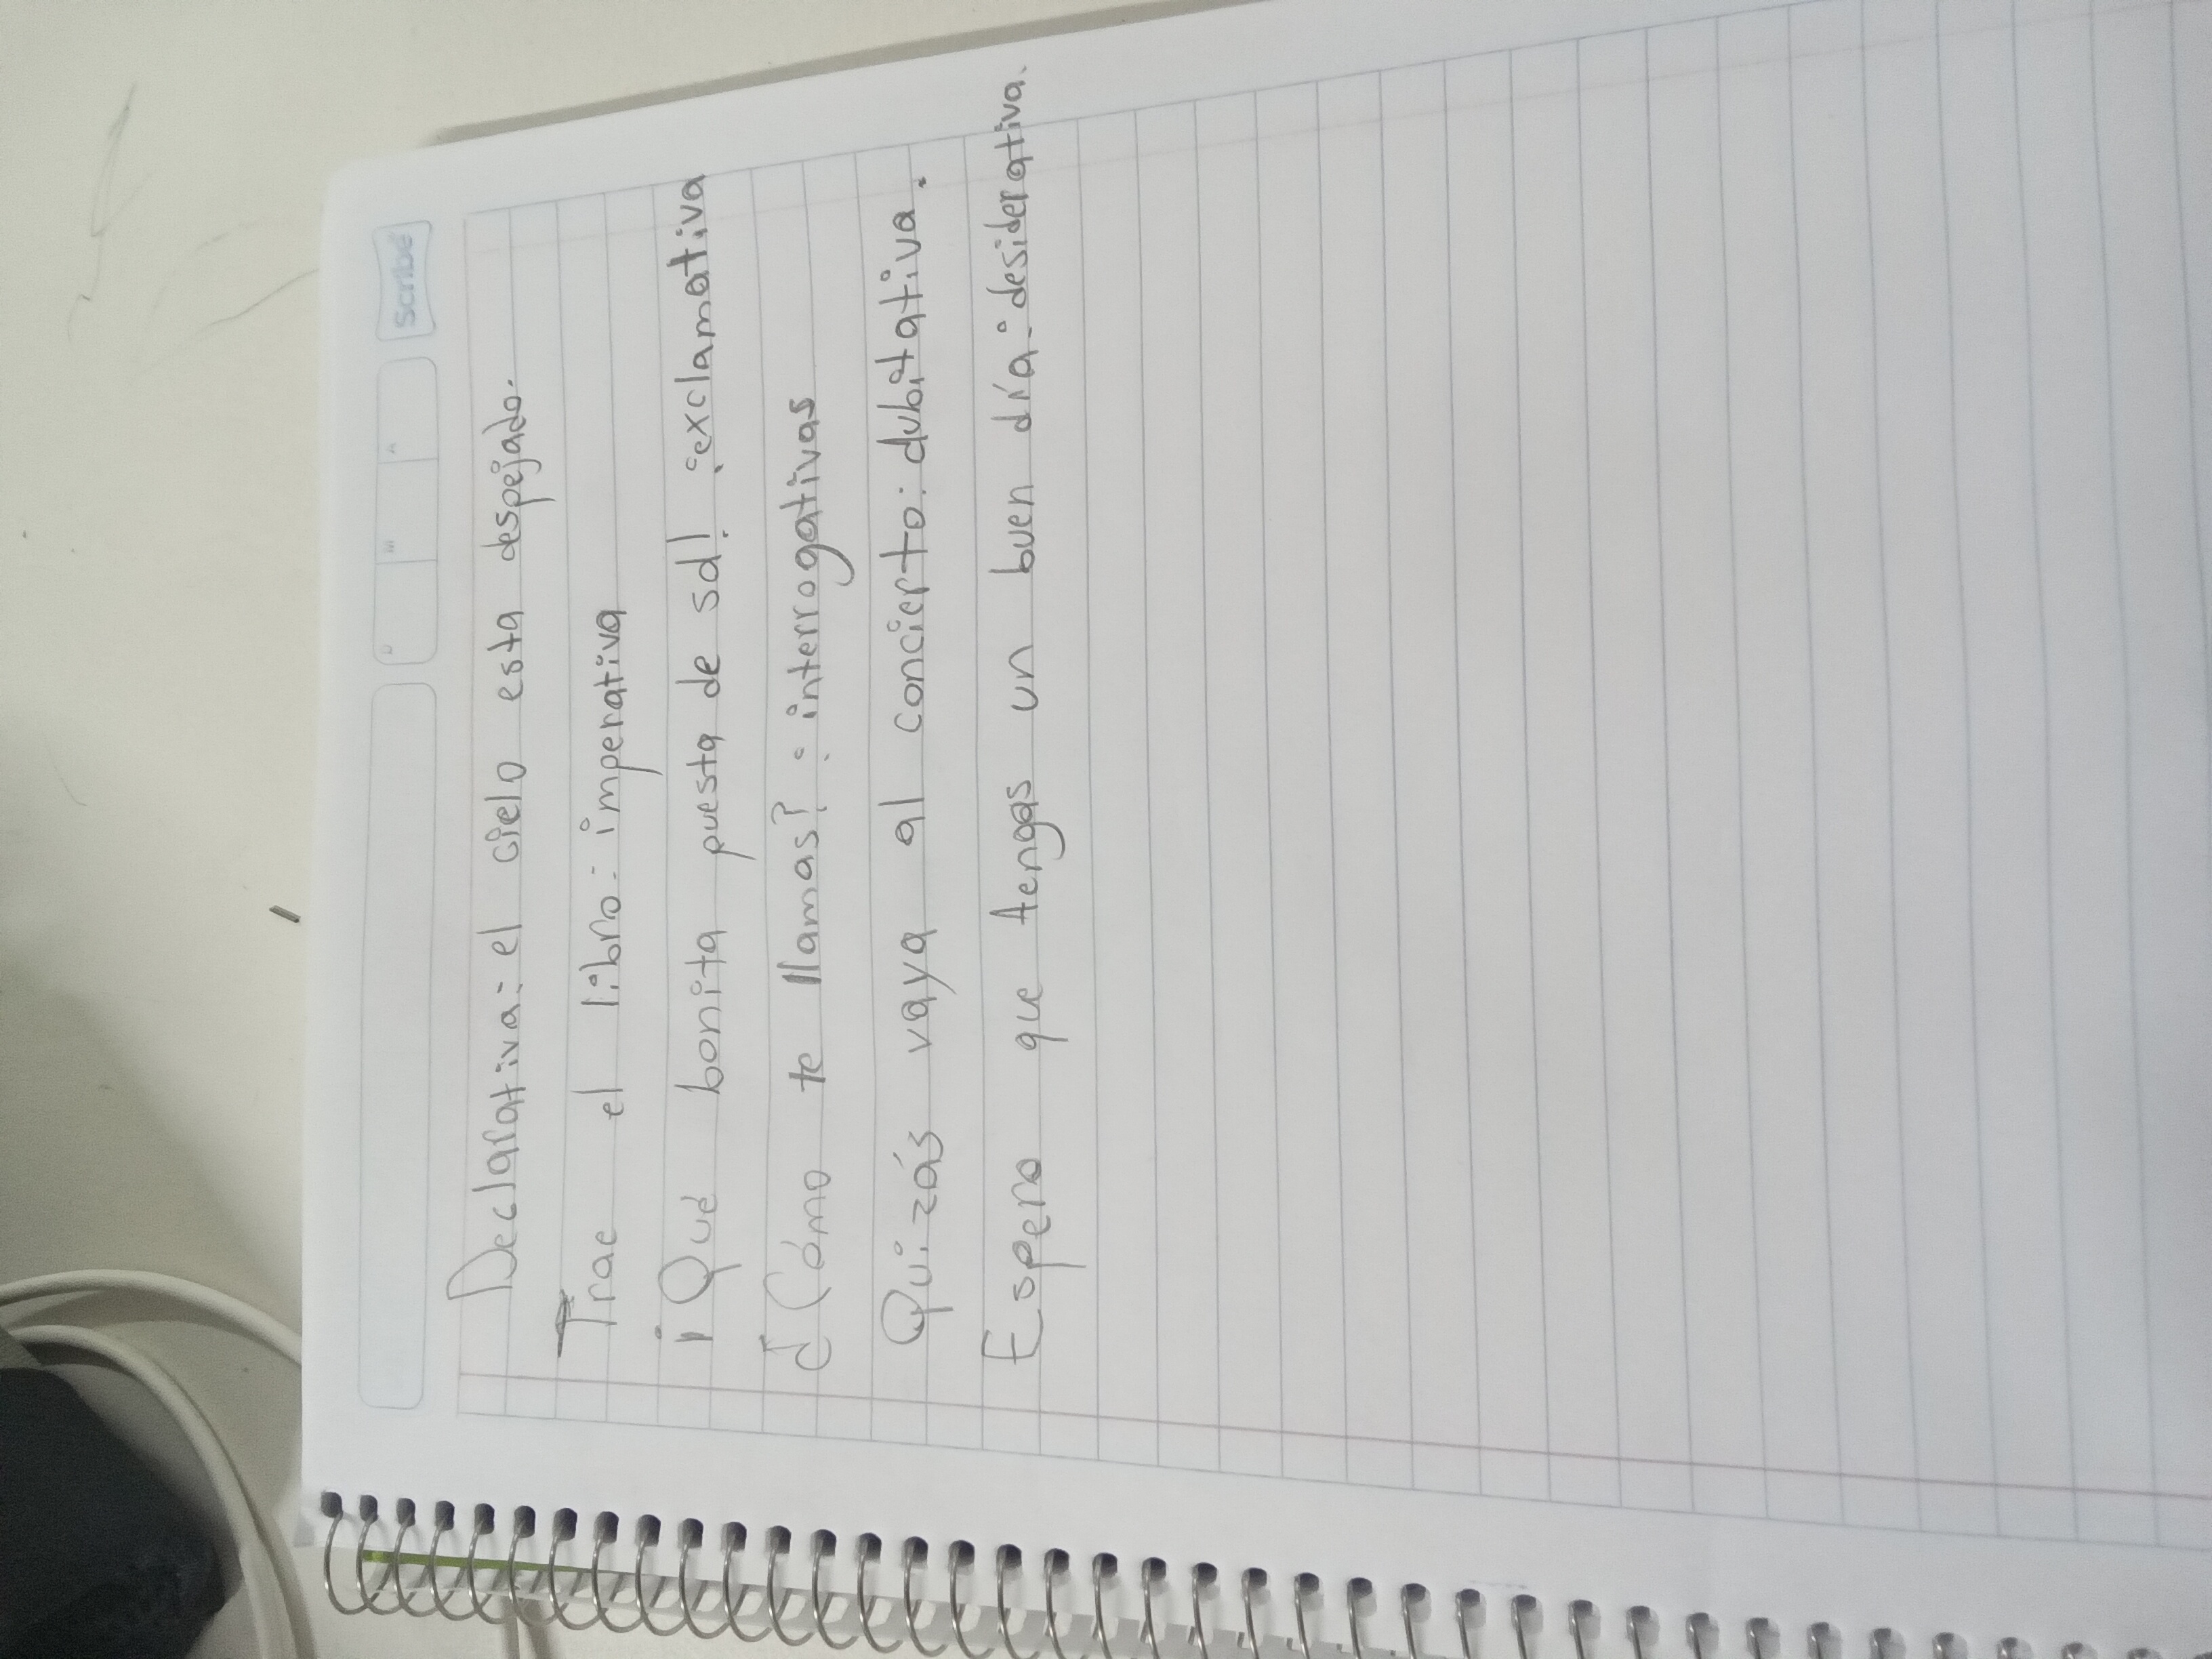 Scribe
D M A
Declarativa: el cielo esta despejado.
Trae el libro: imperativa
¡Qué bonita puesta de sol! :exclamativa
¿Cómo te llamas? : interrogativas
Quizás vaya al concierto: dubitativa.
Espero que tengas un buen día: desiderativa.